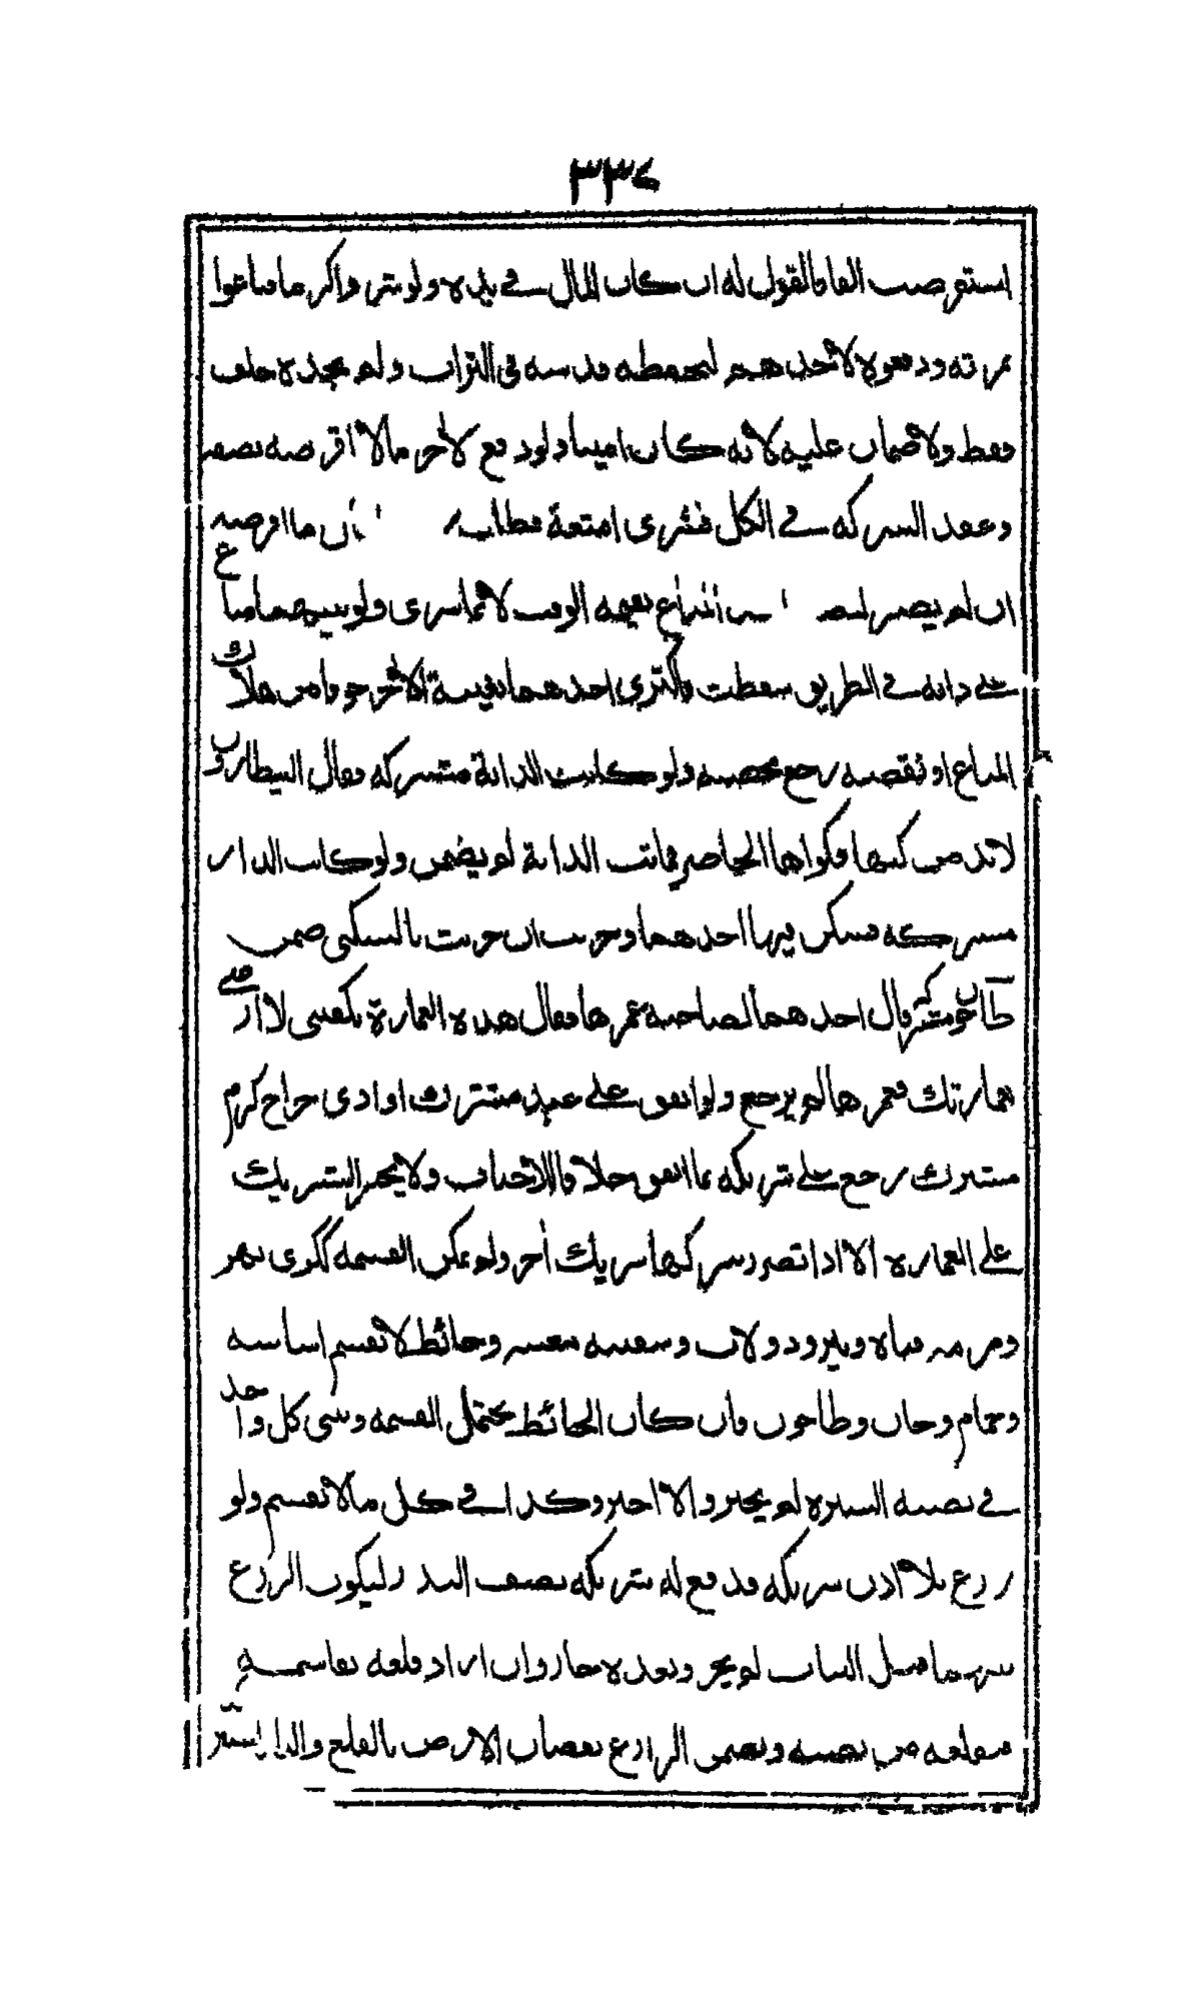 ٣٣٤
استقرضت الفا فالقول له ان كان المال في يده ولو شر واكرما فباعوا
ثمرته ودفعوه لاحدهم ليحفظه فدسه في التراب ولم يجده حلف
فقط ولا ضمان عليه لانه كان امينا ولو دفع لاخر مالا اقرضه نصفه
وعقد الشركة في الكل فشرى امتعة فطلب ان ما اقرضه
ان لم يصبر المتاع بقيمة الوقت لا بما شرى ولو بينهما متاع
على دابة في الطريق سقطت فاكترى احدهما بغيبة الاخر خوفا من هلاك
المتاع او نقصه رجع بحصته ولو كانت الدابة مشتركة وقال البيطارون
لا بد من كيها فكواها الحاضر فماتت الدابة لم يضمن ولو كانت الدار
مشتركة فسكن فيها احدهما وخربت ان خربت بالسكنى ضمن
طاحون مشترك قال احدهما لصاحبه عمرها فقال هذه العمارة تكفيني لا ارضى
بعمارتك فعمرها لم يرجع ولو انفق على عبد مشترك او ادى خراج كرم
مشترك رجع على شريكه بما انفق خلافا للاخباب ولا يجبر الشريك
على العمارة الا اذا تضرر شريكها شريك اخر ولم يمكن القسمة ككرى نهر
ومرمة قناة وبئر ودولاب وسفينة معيبة وحائط لا تقسم اساسه
وحمام وخان وطاحون فان كان الحائط يحتمل القسمة وبنى كل واحد
في نصيبه السترة لم يجبر والا اجبر وكذا في كل مالا تقسم ولو
زرع بلا اذن شريكه فدفع له شريكه نصف البذر ليكون الزرع
بينهما قبل النبات لم يجز وبعده جاز وان اراد قلعه يقاسمه
فيقلعه من نصيبه ويضمن الزارع نقصان الارض بالقلع